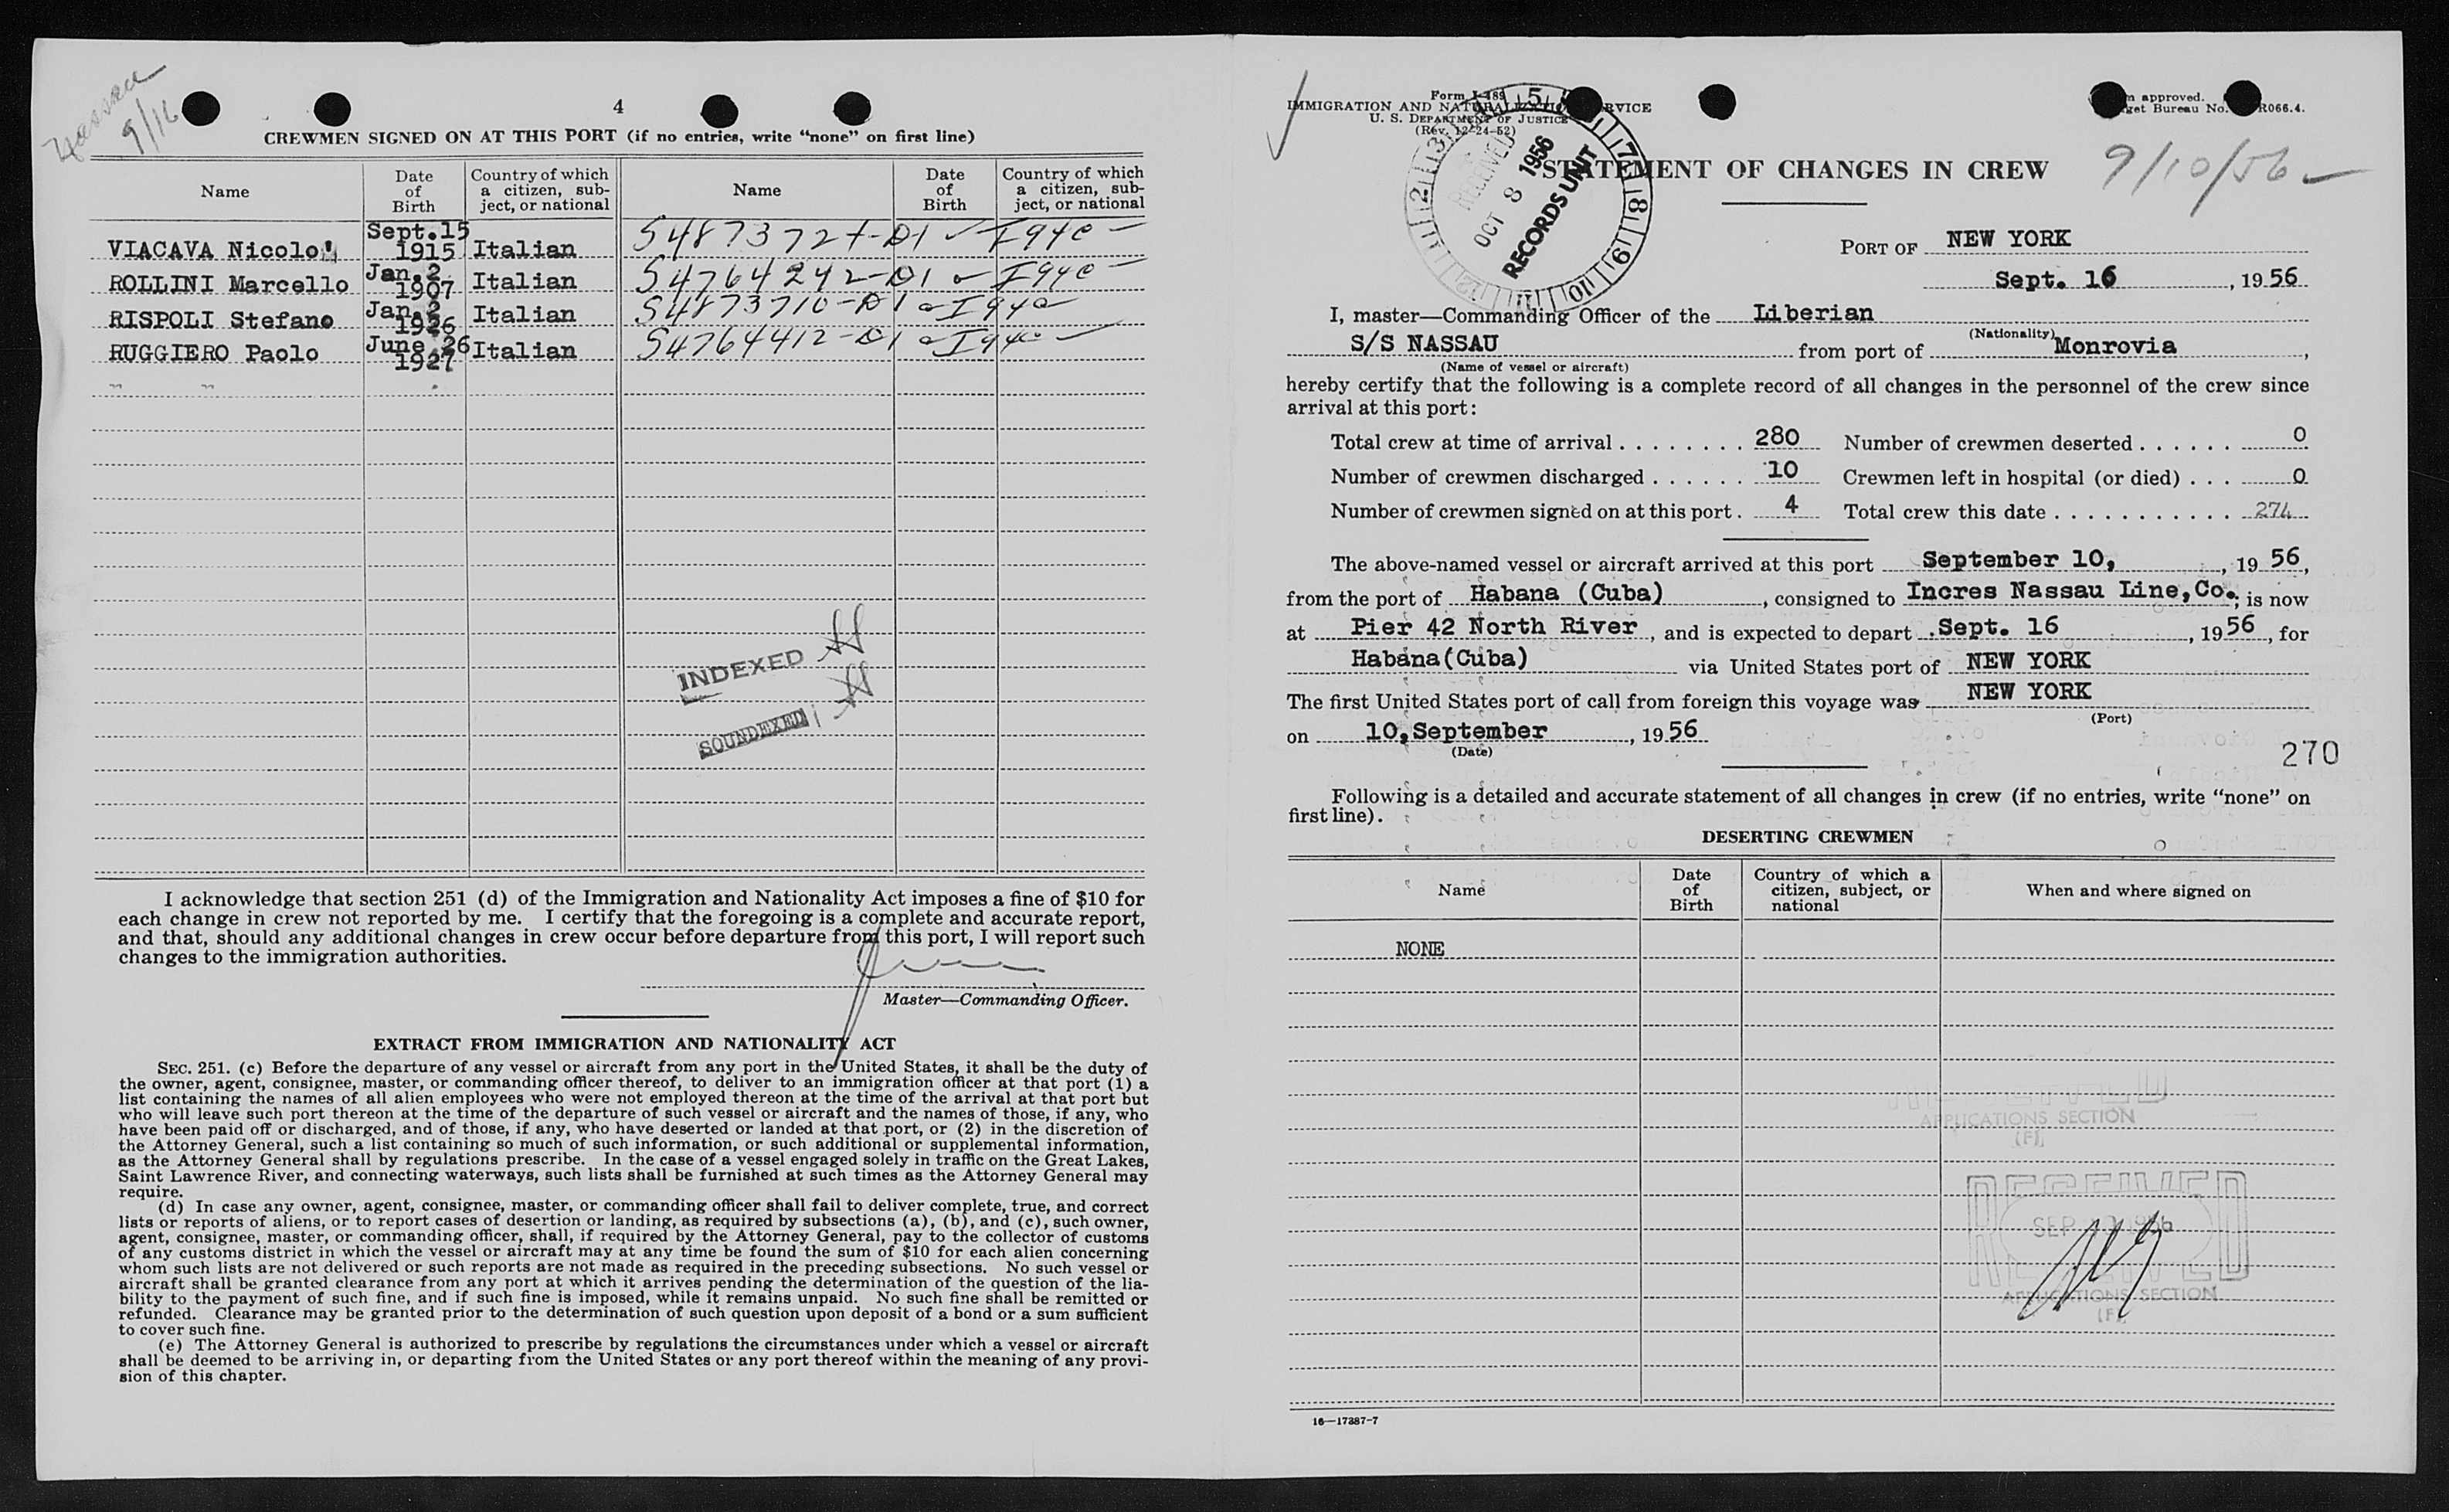 Nassau
9/16
4
CREWMEN SIGNED ON AT THIS PORT (if no entries, write “none” on first line)
Name
Date of Birth
Country of which a citizen, subject, or national
Name
Date of Birth
Country of which a citizen, subject, or national
VIACAVA Nicolo' Sept.15 1915 Italian
ROLLINI Marcello Jan.2 1907 Italian
RISPOLI Stefano Jan.2 1926 Italian
RUGGIERO Paolo June 26 1927 Italian
INDEXED
SOUNDEXED
I acknowledge that section 251 (d) of the Immigration and Nationality Act imposes a fine of $10 for
each change in crew not reported by me. I certify that the foregoing is a complete and accurate report,
and that, should any additional changes in crew occur before departure from this port, I will report such
changes to the immigration authorities.
Master—Commanding Officer.
EXTRACT FROM IMMIGRATION AND NATIONALITY ACT
SEC. 251. (c) Before the departure of any vessel or aircraft from any port in the United States, it shall be the duty of
the owner, agent, consignee, master, or commanding officer thereof, to deliver to an immigration officer at that port (1) a
list containing the names of all alien employees who were not employed thereon at the time of the arrival at that port but
who will leave such port thereon at the time of the departure of such vessel or aircraft and the names of those, if any, who
have been paid off or discharged, and of those, if any, who have deserted or landed at that port, or (2) in the discretion of
the Attorney General, such a list containing so much of such information, or such additional or supplemental information,
as the Attorney General shall by regulations prescribe. In the case of a vessel engaged solely in traffic on the Great Lakes,
Saint Lawrence River, and connecting waterways, such lists shall be furnished at such times as the Attorney General may
require.
(d) In case any owner, agent, consignee, master, or commanding officer shall fail to deliver complete, true, and correct
lists or reports of aliens, or to report cases of desertion or landing, as required by subsections (a), (b), and (c), such owner,
agent, consignee, master, or commanding officer, shall, if required by the Attorney General, pay to the collector of customs
of any customs district in which the vessel or aircraft may at any time be found the sum of $10 for each alien concerning
whom such lists are not delivered or such reports are not made as required in the preceding subsections. No such vessel or
aircraft shall be granted clearance from any port at which it arrives pending the determination of the question of the lia-
bility to the payment of such fine, and if such fine is imposed, while it remains unpaid. No such fine shall be remitted or
refunded. Clearance may be granted prior to the determination of such question upon deposit of a bond or a sum sufficient
to cover such fine.
(e) The Attorney General is authorized to prescribe by regulations the circumstances under which a vessel or aircraft
shall be deemed to be arriving in, or departing from the United States or any port thereof within the meaning of any provi-
sion of this chapter.
Form I-489
IMMIGRATION AND NATURALIZATION SERVICE
U. S. DEPARTMENT OF JUSTICE
(Rev. 12-24-52)
approved.
Bureau No. R066.4.
RECEIVED
OCT 8 1956
RECORDS UNIT
STATEMENT OF CHANGES IN CREW
9/10/56
PORT OF NEW YORK
Sept. 16, 1956
I, master—Commanding Officer of the Liberian
(Nationality)
S/S NASSAU from port of Monrovia,
(Name of vessel or aircraft)
hereby certify that the following is a complete record of all changes in the personnel of the crew since
arrival at this port:
Total crew at time of arrival 280 Number of crewmen deserted 0
Number of crewmen discharged 10 Crewmen left in hospital (or died) 0
Number of crewmen signed on at this port 4 Total crew this date 274
The above-named vessel or aircraft arrived at this port September 10, , 19 56,
from the port of Habana (Cuba), consigned to Incres Nassau Line,Co.; is now
at Pier 42 North River, and is expected to depart Sept. 16, 1956, for
Habana(Cuba) via United States port of NEW YORK
The first United States port of call from foreign this voyage was NEW YORK
(Port)
on 10,September, 1956
(Date)
270
Following is a detailed and accurate statement of all changes in crew (if no entries, write “none” on
first line).
DESERTING CREWMEN
Name
Date of Birth
Country of which a citizen, subject, or national
When and where signed on
NONE
APPLICATIONS SECTION
(F)
RECEIVED
SEP 1956
APPLICATIONS SECTION
(F)
16—17387-7